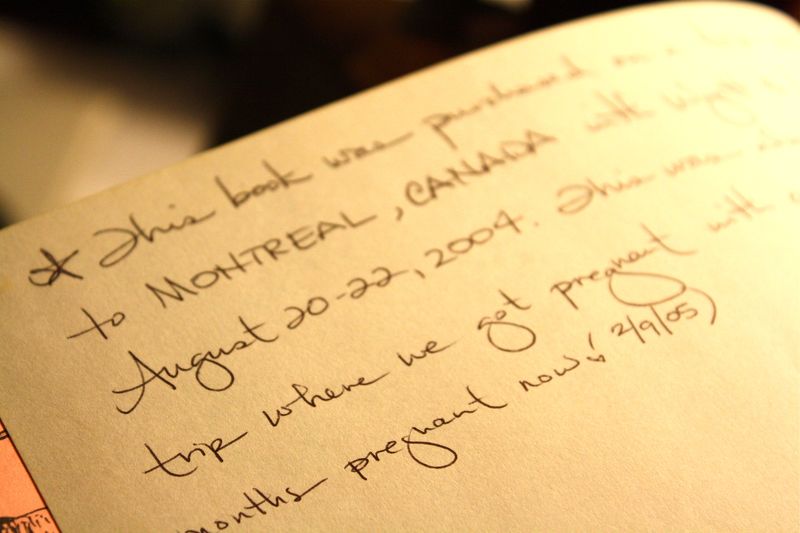 * This book was purchased on a
to MONTREAL, CANADA with
August 20-22, 2004. This was
trip where we got pregnant with
months pregnant now! (2/9/05)